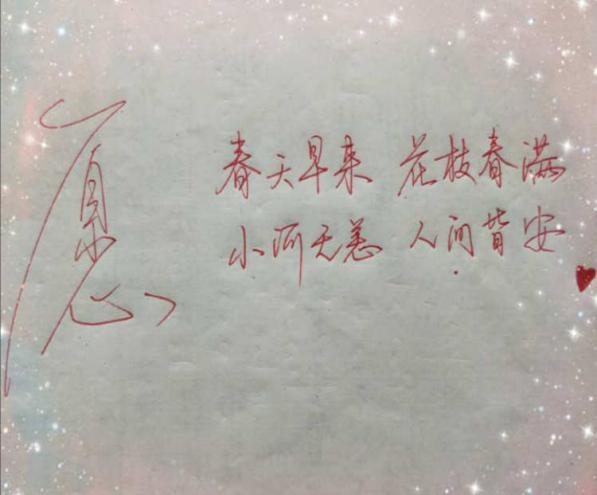 愿
春天早来 花枝春满
小河无恙 人间皆安